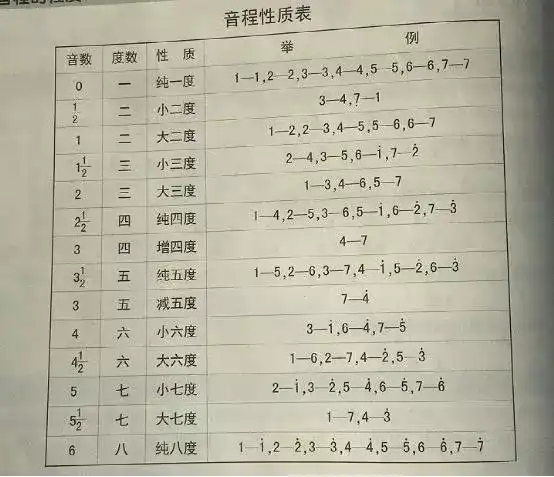 音程性质表
音数 度数 性 质 举 例
0 一 纯一度 1—1,2—2,3—3,4—4,5—5,6—6,7—7
1/2 二 小二度 3—4,7—1
1 二 大二度 1—2,2—3,4—5,5—6,6—7
1 1/2 三 小三度 2—4,3—5,6—i,7—2̇
2 三 大三度 1—3,4—6,5—7
2 1/2 四 纯四度 1—4,2—5,3—6,5—i,6—2̇,7—3̇
3 四 增四度 4—7
3 1/2 五 纯五度 1—5,2—6,3—7,4—i,5—2̇,6—3̇
3 五 减五度 7—4̇
4 六 小六度 3—i,6—4̇,7—5̇
4 1/2 六 大六度 1—6,2—7,4—2̇,5—3̇
5 七 小七度 2—i,3—2̇,5—4̇,6—5̇,7—6̇
5 1/2 七 大七度 1—7,4—3̇
6 八 纯八度 1—i,2—2̇,3—3̇,4—4̇,5—5̇,6—6̇,7—7̇